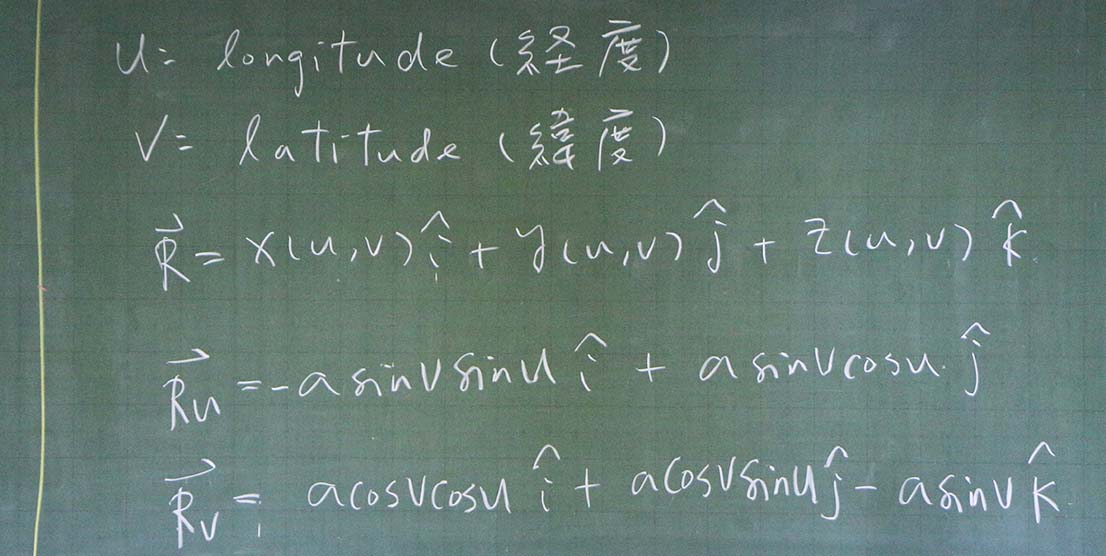 u= longitude (経度)
v= latitude (緯度)
R⃗ = x(u,v) î + y(u,v) ĵ + z(u,v) k̂
R⃗u = -a sinv sinu î + a sinv cosu ĵ
R⃗v = a cosv cosu î + a cosv sinu ĵ - a sinv k̂